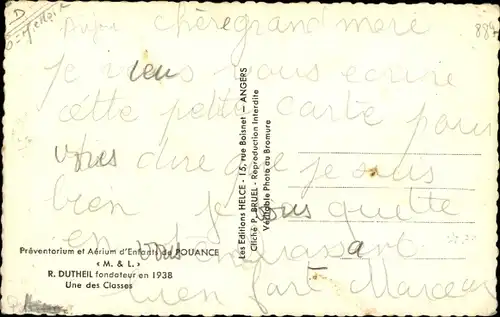 Anjou
chère grand mere
je viens vous ecrire
cette petite carte pour
vous dire que je suis
bien je vous quitte
en vous embrassant
bien fort Marceau
Les Editions HELCE - 15, rue Boisnet - ANGERS
Cliché P. BRUEL - Reproduction Interdite
Véritable Photo au Bromure
Préventorium et Aérium d'Enfants de POUANCE
« M. & L. »
R. DUTHEIL fondateur en 1938
Une des Classes